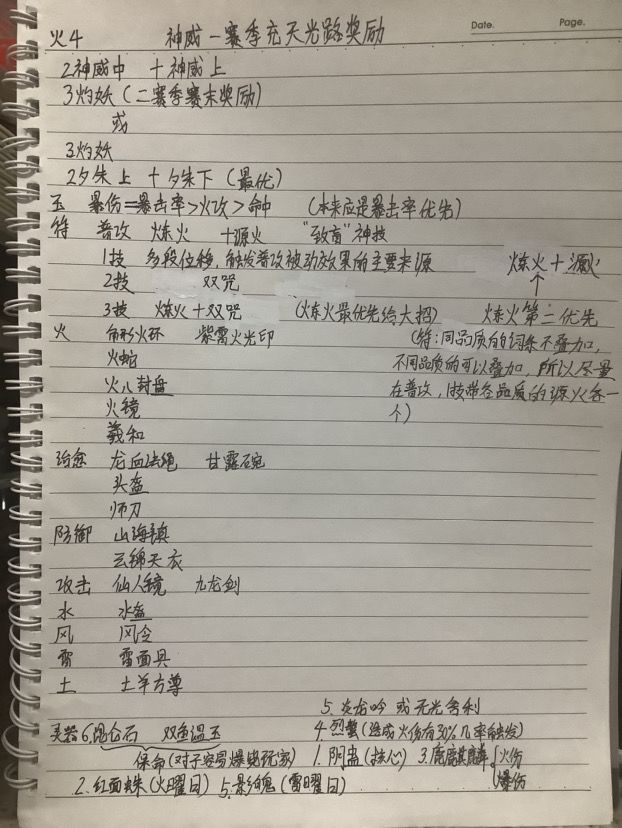 Date. Page.
火4 神威一赛季充天光路奖励
2神威中 十神威上
3灼妖（二赛季赛末奖励）
或
3灼妖
2夕朱上 十夕朱下（最优）
玉 暴伤=暴击率>火攻>命中 （本来应是暴击率优先）
符 普攻 炼火 +源火 "致盲"神技
1技 多段位移，触发普攻被动效果的主要来源 炼火+源火
2技 双咒 ↑
3技 炼火+双咒 （炼火最优先给大招） 炼火第二优先
火 角形火环 紫霄火光印 （符：同品质的词条不叠加，
火蛇 不同品质的可以叠加，所以尽量
火八封盘 在普攻，1技带各品质的源火各一
火镜 个）
羲和
治愈 龙血法绳 甘露碗
头盔
师刀
防御 山海镇
云锦天衣
攻击 仙人镜 九龙剑
水 水盔
风 风令
雷 雷面具
土 土羊方尊
5.炎龙吟 或 无光舍利
灵器6.昆仑石 双鱼温玉 4.烈蜚（造成火伤有30%几率触发）
保命（对于容易爆毙玩家） 1.阴蛊（核心） 3.麒麟 火伤
2.红面蛛（火曜日） 5.影魄（雷曜日） 爆伤